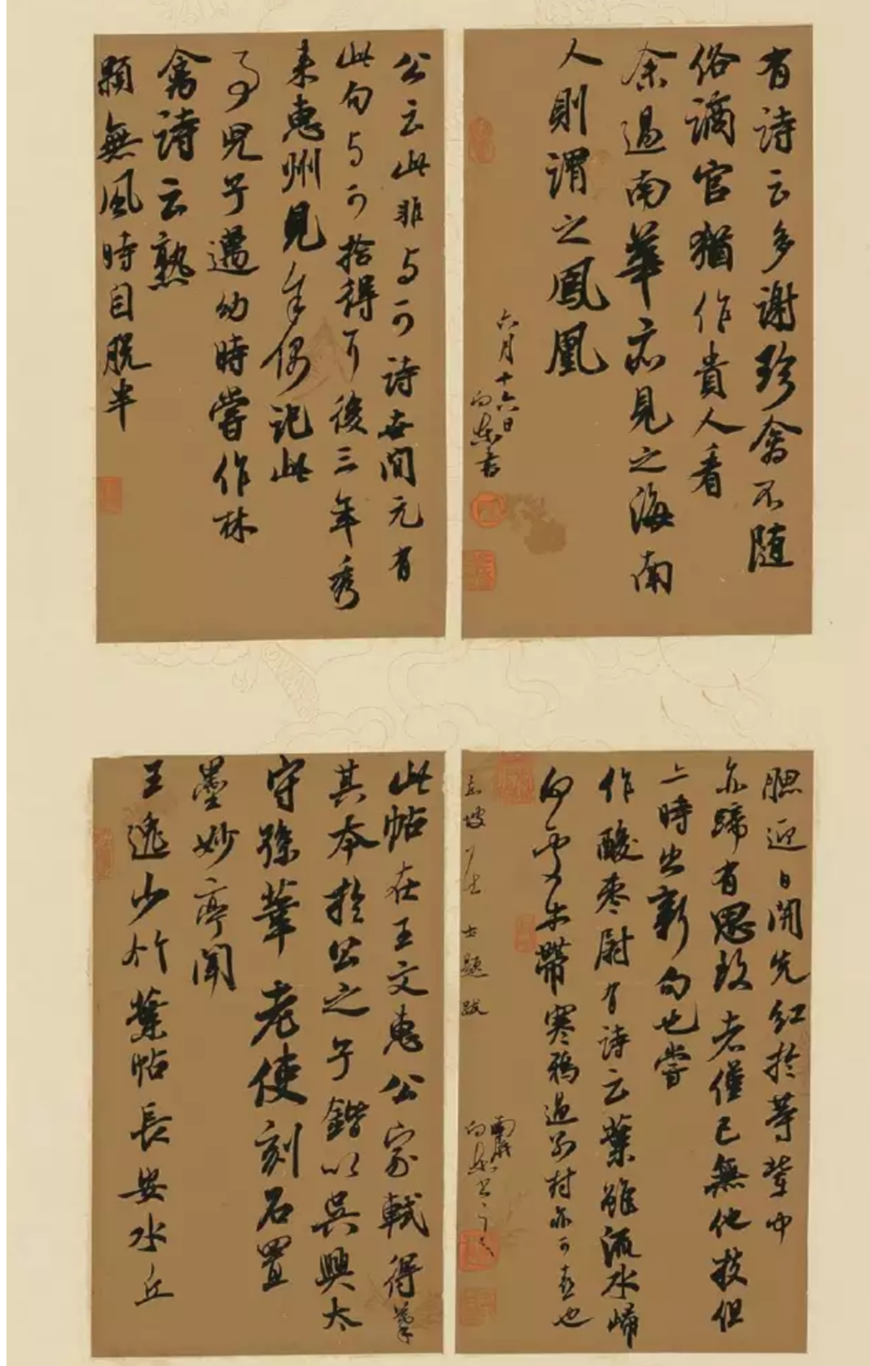 有詩云多謝珍禽不随
俗謫官猶作貴人看
余過南華亦見之海南
人則謂之鳳凰
六月十六日
公云此非与可詩世間元有
此句与可拾得耳後三年秀
来惠州見余偶記此
事兒子邁幼時嘗作林
禽詩云熟
顆無風時自脫半
腮迎日開先紅於等輩中
亦號有思致者僅已無他技但
亦時出新句也嘗
作酸棗尉有詩云葉随流水歸
何處牛帶寒鴉過別村亦可喜也
东坡居士題跋
此帖在王文惠公家軾得摹
其本於公之子鍇以吳興太
守孫莘老使刻石置
墨妙亭聞
王逸少竹葉帖長安水丘